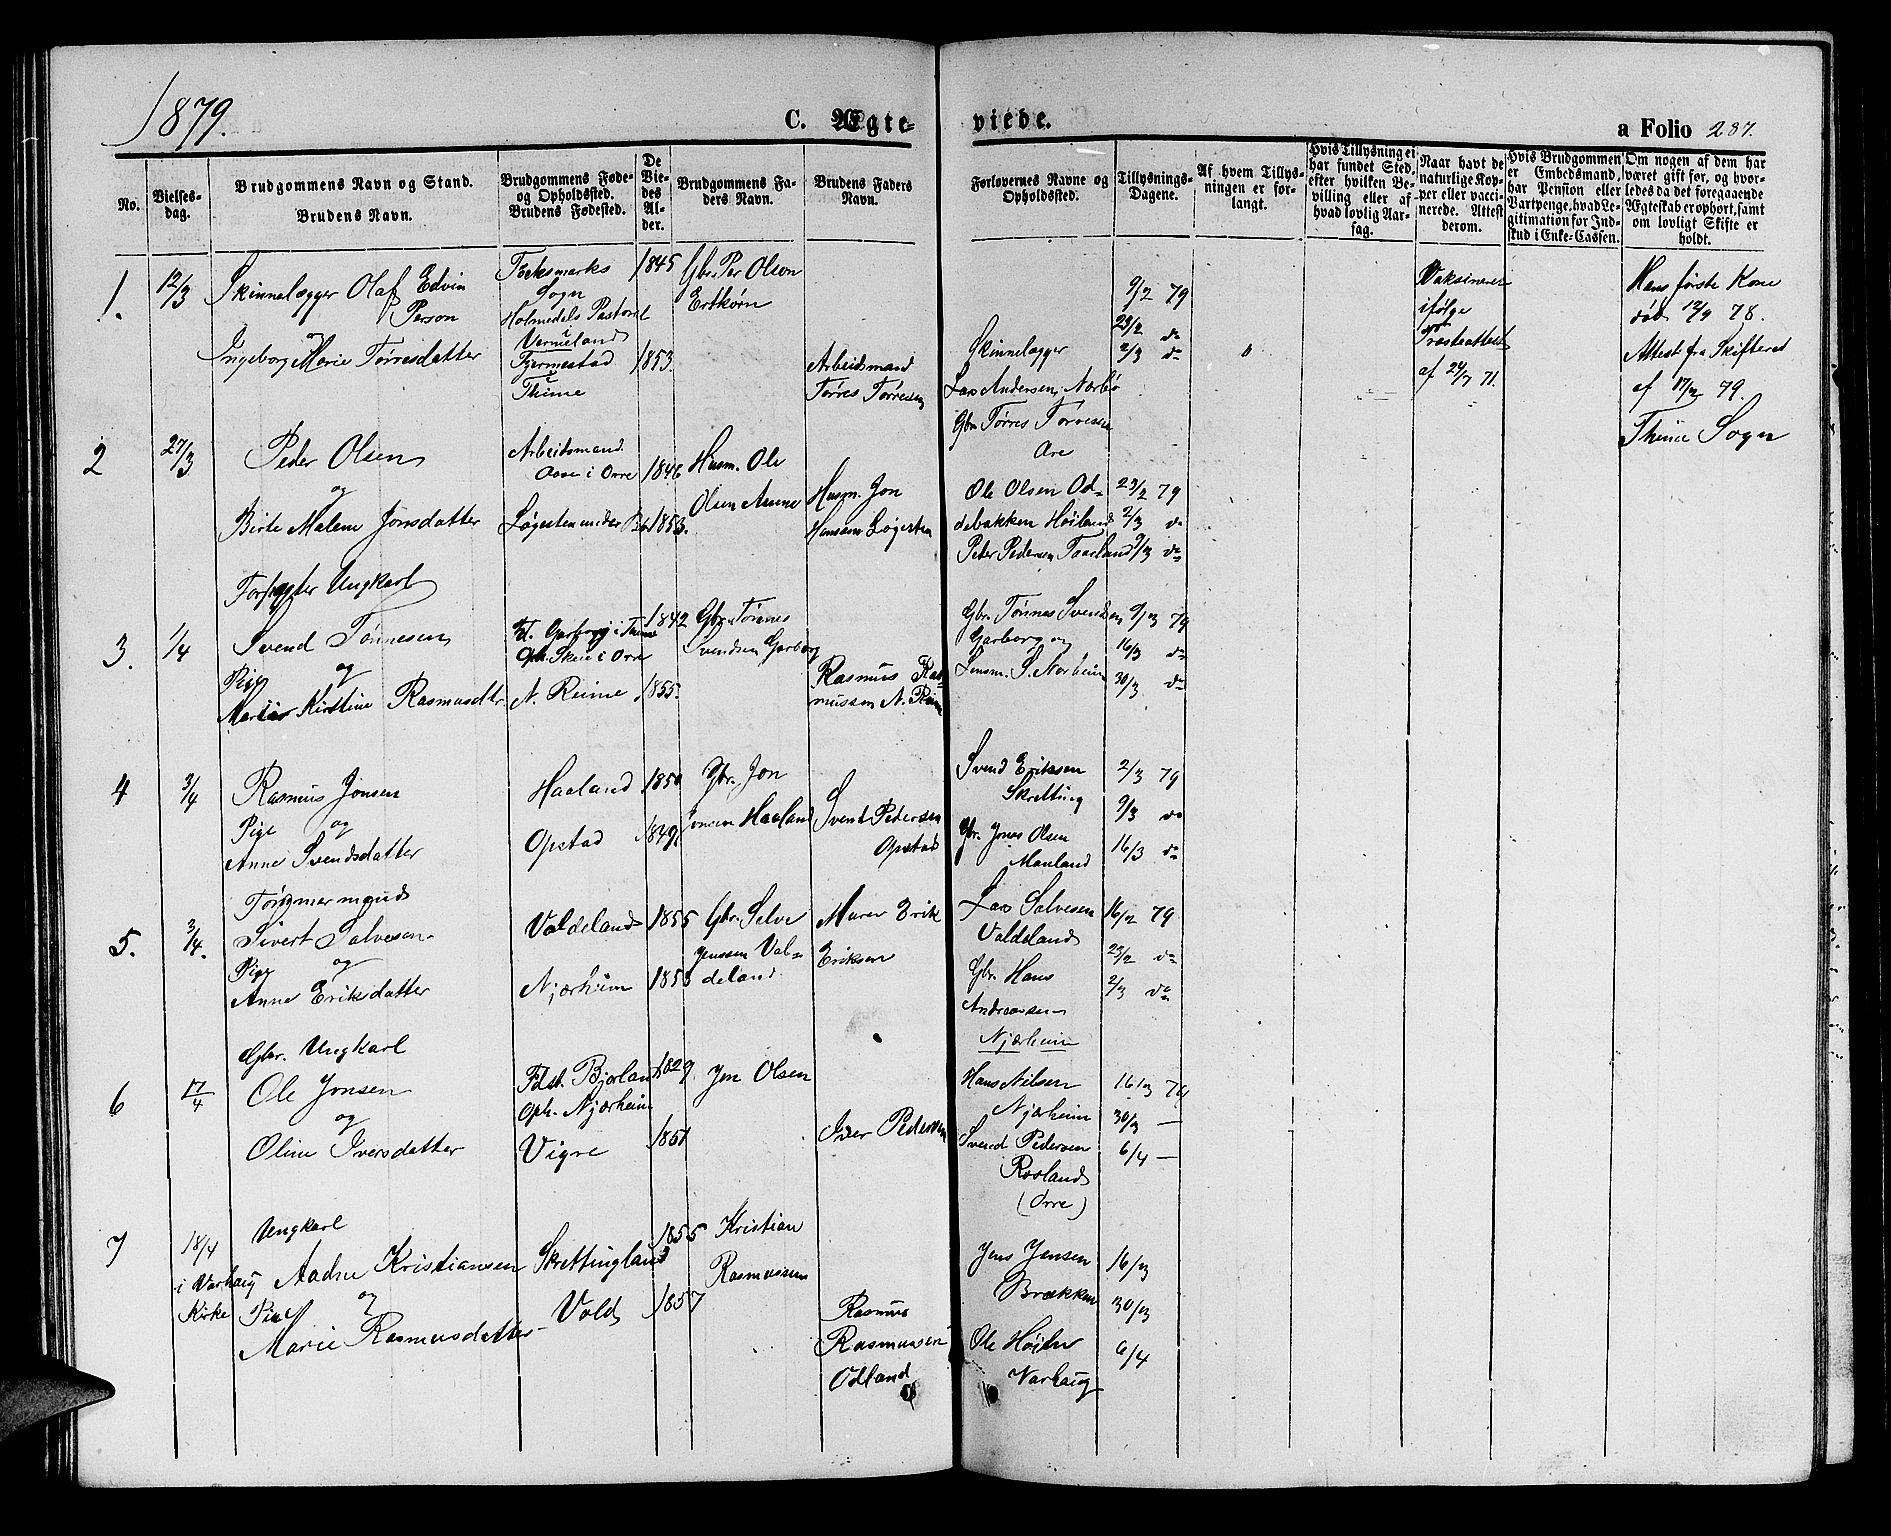 1879.
C. Ægte-
viede.
a Folio 287.
No.
Vielses-
dag.
Brudgommens Navn og Stand.
Brudens Navn.
Brudgommens Føde-
og Opholdssted.
Brudens Fødested.
De
Vie-
des
Al-
der.
Brudgommens Fa-
ders Navn.
Brudens Faders
Navn.
Forlovernes Navne og
Opholdssted.
Tillysnings-
Dagene.
Af hvem Tillys-
ningen er for-
langt.
Hvis Tillysning ei
har fundet Sted,
efter hvilken Be-
villing eller af
hvad lovlig Aar-
sag.
Naar havt de
naturlige Kop-
per eller vacci-
nerede. Attest
derom.
Hvis Brudgommen
er Embedsmand,
har Pension eller
Vartpenge, hvad Le-
gitimation for Ind-
skud i Enke-Cassen.
Om nogen af dem har
været gift før, og hvor-
ledes da det foregaaende
Ægteskab er ophørt, samt
om lovligt Skifte er
holdt.
1.
12/3
Skinnelægger Olaf Edvin
Person
og
Ingeborg Marie Tørresdatter
Sogn
Holmedals Pastorat
i
Vermeland
Thime
1845
1853.
Gbr. Per Olson
Arbeidsmand
Tørres Tørresen
Skinnelægger
Lars Andersen, Nærbø
Gbr. Tørres Tørresen
Are
9/2 79
23/2 do
2/3 do
Vaksineret
ifølge
Præsteattest
af 24/7 71.
Hans første Kone
død 12/9 78.
Attest fra Skifteret
af 17/2 79.
Thime Sogn
2
27/3
Peder Olsen
og
Birte Malene Jonsdatter
Arbeidsmand
i Orre
1846
1853.
Husm. Ole
Olsen
Husm. Jon
Hansen
Ole Olsen Od-
debakken Høiland
Peder Pedersen
23/2 79
2/3 do
9/3 do
3.
1/4
Ungkarl
Svend Tønnesen
Pige og
Kirstine Rasmusdtr.
Garborg i Thime
Oph. Skeie i Orre
N. Reime
1842
1855.
Gbr. Tønnes
Svendsen Garborg
Rasmus Ras-
mussen N. Reime
Gbr. Tønnes Svendsen
Garborg og
Lensm. S. Norheim
9/3 79
16/3 do
30/3 do
4
3/4
Rasmus Jonsen
Pige og
Anne Svendsdatter
Haaland
Opstad
1850
1849
Gbr. Jon
Jonsen Haaland
Svend Pedersen
Opstad
Svend Eriksen
Skretting
Gbr. Jonas Olsen
Mauland
2/3 79
9/3 do
16/3 do
5.
3/4.
Tømmermand
Sivert Salvesen
Pige og
Anne Eriksdatter
Valdeland
Njærheim
1855
1858
Gbr. Selve
Jenssen Val-
deland
Murer Erik
Eriksen
Lars Salvesen
Valdeland
Gbr. Hans
Andreassen
Njærheim
16/2 79
23/2 do
2/3 do
6
17/4
Gbr. Ungkarl
Ole Jonsen
og
Oline Iversdatter
Fdst. Bjorland
Oph. Njærheim
Vigre
1829
1851
Jon Olsen
Iver Pedersen
Hans Nilsen
Njærheim
Svend Pedersen
Rosland
(Orre)
16/3 79
30/3 —
6/4 —
7
18/4
i Varhaug
Kirke
Ungkarl
Aadne Kristiansen
Pige og
Marie Rasmusdatter
Skrettingland
Vold
1855
1857
Kristian
Rasmussen
Rasmus
Rasmussen
Odland
Jens Jensen
Brækken
Ole Høiland
Varhaug
16/3
30/3
6/4